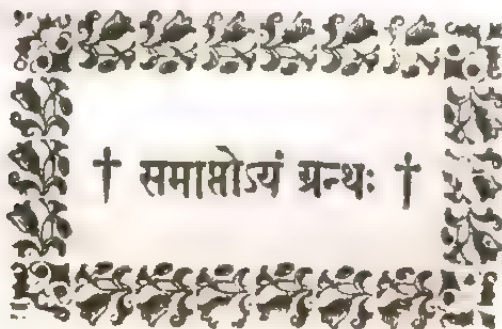 † समाप्तोऽयं ग्रन्थः †